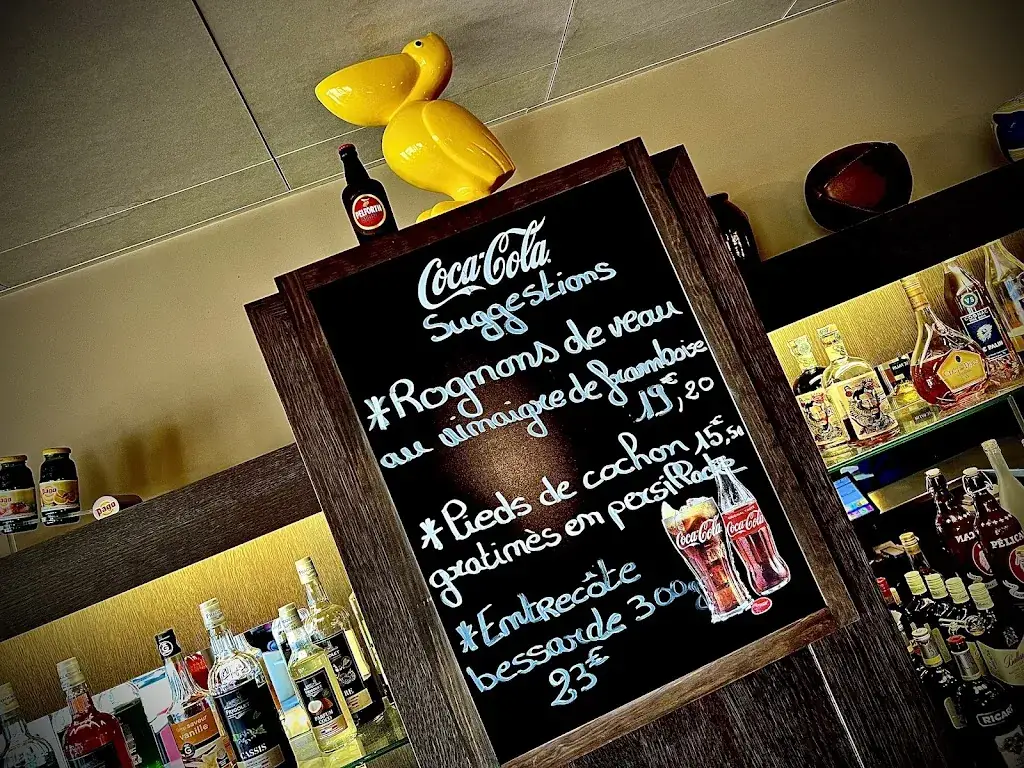 PELFORTH
Coca-Cola
Suggestions
*Rognons de veau
au vinaigre de framboise
19€,20
*Pieds de cochon 15€,50
gratinés en persillade
*Entrecôte
bessarde 300g
23€
Coca-Cola
Coca-Cola
pago
pago
vanille
CASSIS
PÉLIC
RICAR